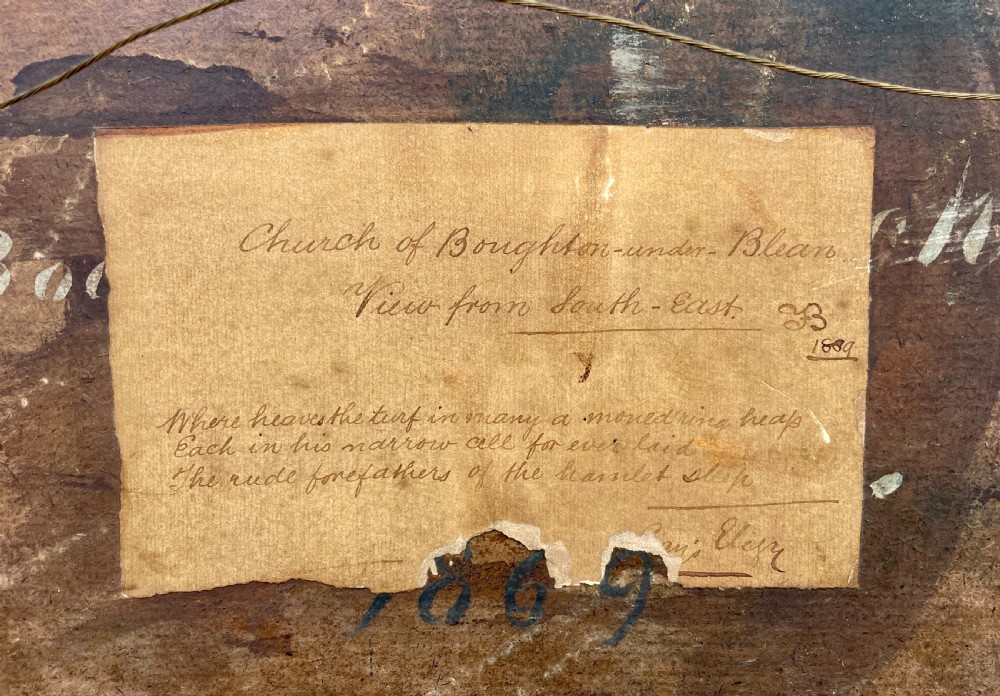 Church of Boughton-under-Blean
View from South-East.
1889
Where heaves the turf in many a mould'ring heap
Each in his narrow cell for ever laid
The rude forefathers of the hamlet sleep
Elegy
1869